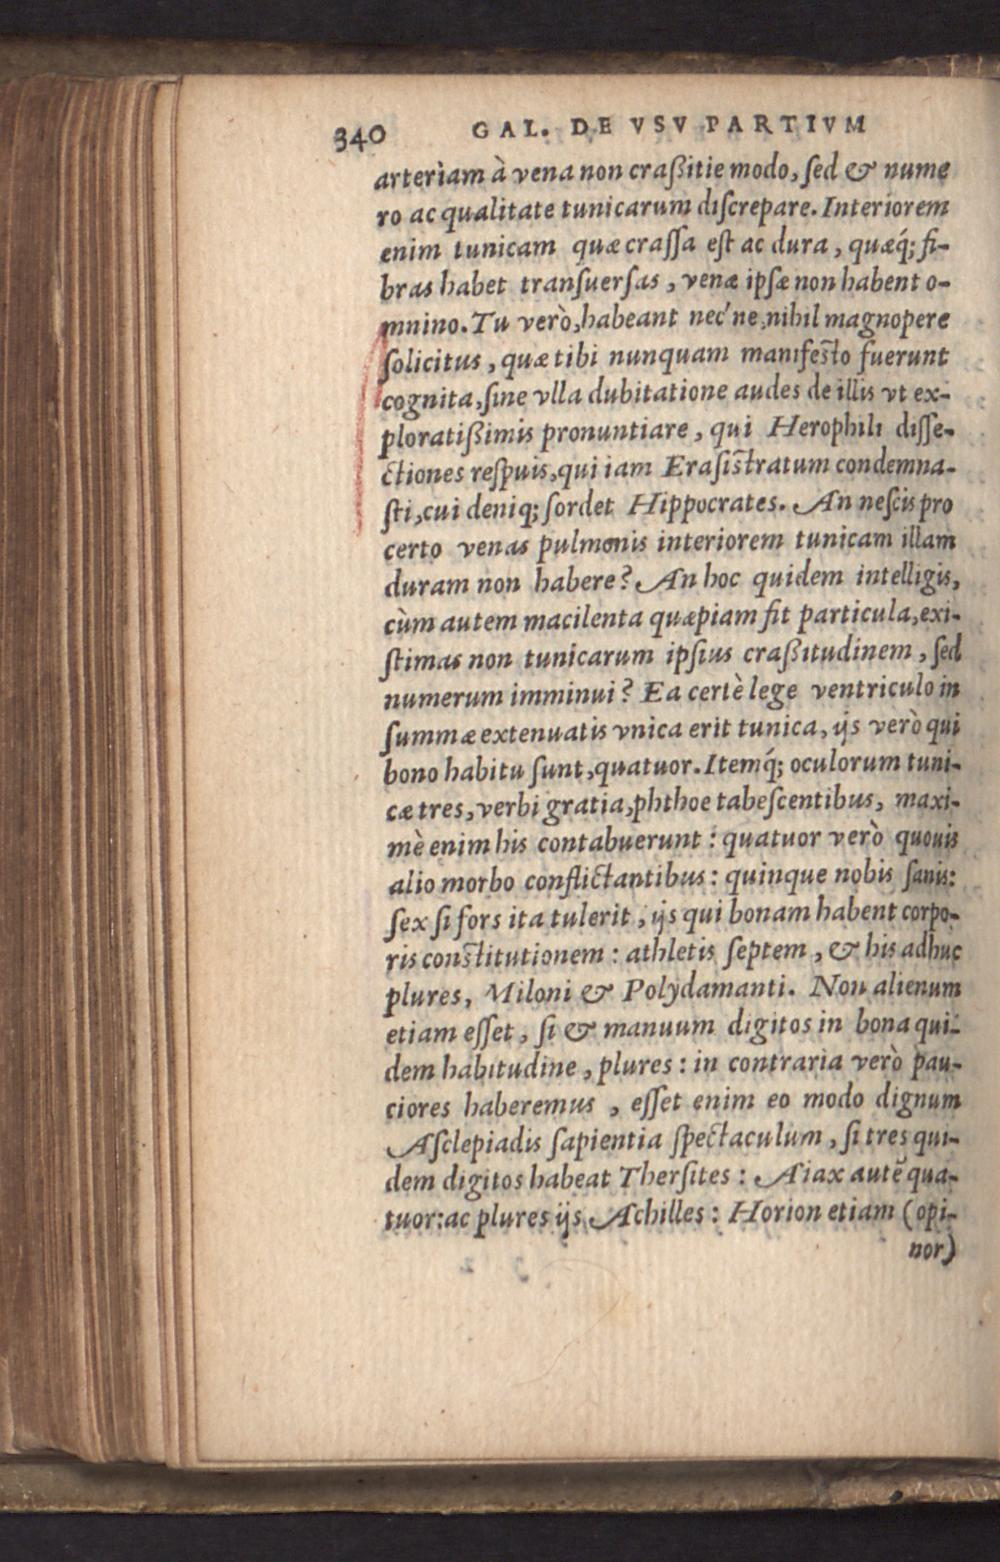 340 GAL. DE VSV PARTIVM
arteriam à vena non craßitie modo, ſed & nume
ro ac qualitate tunicarum diſcrepare. Interiorem
enim tunicam quæ craſſa eſt ac dura, quæq́; fi-
bras habet tranſuerſas, venæ ipſæ non habent o-
mnino. Tu verò, habeant nec ne, nihil magnopere
ſolicitus, quæ tibi nunquam manifeſto fuerunt
cognita, ſine vlla dubitatione audes de illis vt ex-
ploratißimis pronuntiare, qui Herophili diſſe-
ctiones reſpuis, qui iam Eraſiſtratum condemna-
ſti, cui deniq; ſordet Hippocrates. An neſcis pro
certo venas pulmonis interiorem tunicam illam
duram non habere? An hoc quidem intelligis,
cùm autem macilenta quæpiam fit particula, exi-
ſtimas non tunicarum ipſius craßitudinem, ſed
numerum imminui? Ea certè lege ventriculo in
ſummæ extenuatis vnica erit tunica, ijs verò qui
bono habitu ſunt, quatuor. Itemq́; oculorum tuni-
cæ tres, verbi gratia, phthoe tabeſcentibus, maxi-
mè enim his contabuerunt: quatuor verò quouis
alio morbo conflictantibus: quinque nobis ſanis:
ſex ſi fors ita tulerit, ijs qui bonam habent corpo-
ris conſtitutionem: athletis ſeptem, & his adhuc
plures, Miloni & Polydamanti. Non alienum
etiam eſſet, ſi & manuum digitos in bona qui-
dem habitudine, plures: in contraria verò pau-
ciores haberemus, eſſet enim eo modo dignum
Aſclepiadis ſapientia ſpectaculum, ſi tres qui-
dem digitos habeat Therſites: Aiax autē qua-
tuor: ac plures ijs Achilles: Horion etiam (opi-
nor)